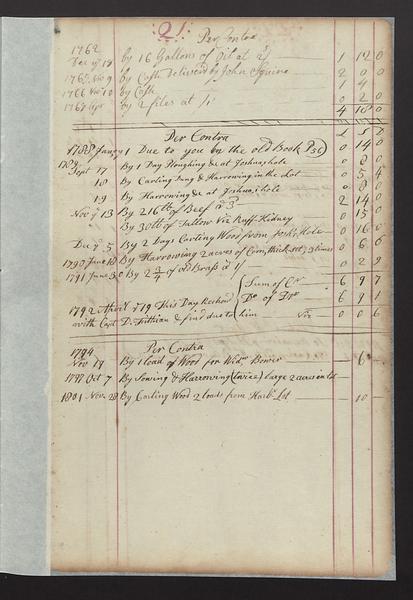 21:
Per Contra
1762
Dec ye 17 by 16 Gallons of Oil at 2/ 1 12 0
1765 Nov 9 by Cash Delivered by John Squire 2 0 0
1766 Nov 10 by Cash 1 4
1767 Apr by 2 files at 1/ 0 2 0
4 18 0
Per Contra £ S D
1788 Janry 1 Due to you in the old Book P36 0 14 0
1789
Sept 17 By 1 Day Ploughing &c at Joshua,s hole 0 8 0
18 By Carting Dung & Harrowing in the Lot 0 5 4
19 By Harrowing &c at Joshua,s hole 0 8 0
Nov ye 13 By 216 lb of Beef @ 3d 2 14 0
By 30 lb of Tallow Viz Ruff Kidney 0 15 0
Dec ye 5 By 2 Days Carting Wood from Josh,s Hole 0 16 0
1790 June 10 By Harrowing 2 acres of Corn, thick set, 3 times 0 6 6
1791 June 30 By 2 3/4 of old Brass at 1/ 0 2 9
Sum of Cr 6 9 7
1792 April ye 19 This Day Reckond Do of Dr 6 9 1
with Capt D. Fithian & find due to him Viz 0 0 6
Per Contra
1794
Nov 19 By 1 load of Wood for Widw Bower 6
1797 Oct 7 By Sowing & Harrowing (twice) large 2 acres in lot
1801 Nov 28 By Carting Wood 2 loads from Harbr Lot 10